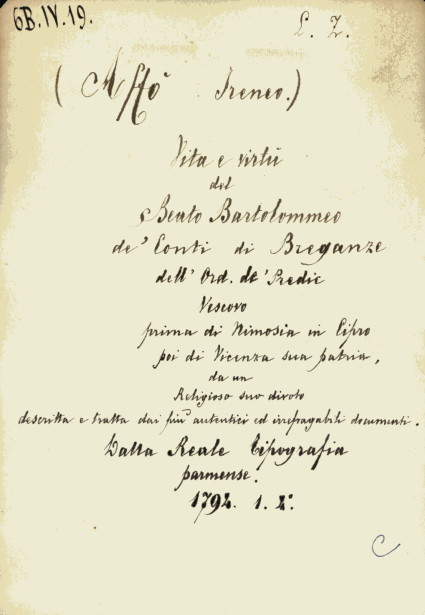 6B.IV.19.
L. Z.
(Affò Ireneo.)
Vita e virtù
del
Beato Bartolommeo
de' Conti di Breganze
dell' Ord. de' Predic
Vescovo
prima di Nimosia in Cipro
poi di Vicenza sua patria,
da un
Religioso suo divoto
descritta e tratta dai più autentici ed irrefragabili documenti.
Dalla Reale Tipografia
parmense.
1794. 1. 4°.
C